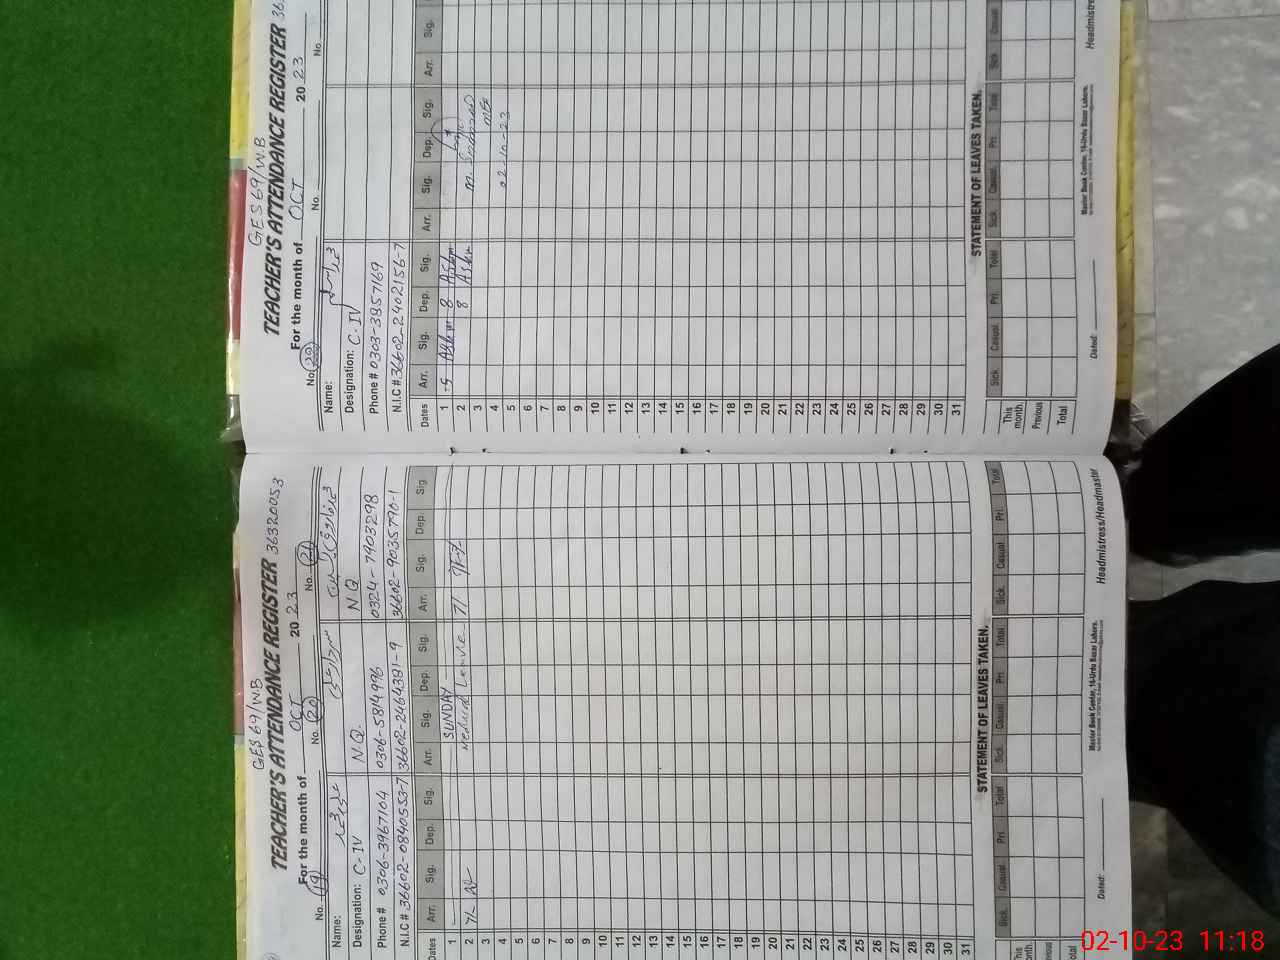 GES 69/W.B
TEACHER'S ATTENDANCE REGISTER 36320053
For the month of OCT 2023
No. 19 No. 20 No. 21
Name:
Designation: C-IV N.Q. N.Q
Phone # 0306-3967104 0306-5814996 0324-7903298
N.I.C # 36602-0840553-7 36602-2464391-9 36602-9035790-1
Dates Arr. Sig. Dep. Sig. Arr. Sig. Dep. Sig. Arr. Sig. Dep. Sig.
1 SUNDAY
2 7/- Medical Leave 7/
3
4
5
6
7
8
9
10
11
12
13
14
15
16
17
18
19
20
21
22
23
24
25
26
27
28
29
30
31
STATEMENT OF LEAVES TAKEN.
Sick. Casual Pri. Total Sick. Casual Pri. Total Sick. Casual Pri. Total
This month.
Previous
Total
Master Book Center, 16-Urdu Bazar Lahore.
Dated: Headmistress/Headmaster
GES 69/W.B
TEACHER'S ATTENDANCE REGISTER 36
For the month of OCT 2023
No. 22 No. No.
Name:
Designation: C-IV
Phone # 0303-3857169
N.I.C # 36602-2402156-7
Dates Arr. Sig. Dep. Sig. Arr. Sig. Dep. Sig. Arr. Sig.
1 8
2 8
3
4 02-10-23
5
6
7
8
9
10
11
12
13
14
15
16
17
18
19
20
21
22
23
24
25
26
27
28
29
30
31
STATEMENT OF LEAVES TAKEN.
Sick. Casual Pri. Total Sick. Casual Pri. Total Sick Casual
This month.
Previous
Total
Master Book Center, 16-Urdu Bazar Lahore.
Dated: Headmistre
02-10-23 11:18